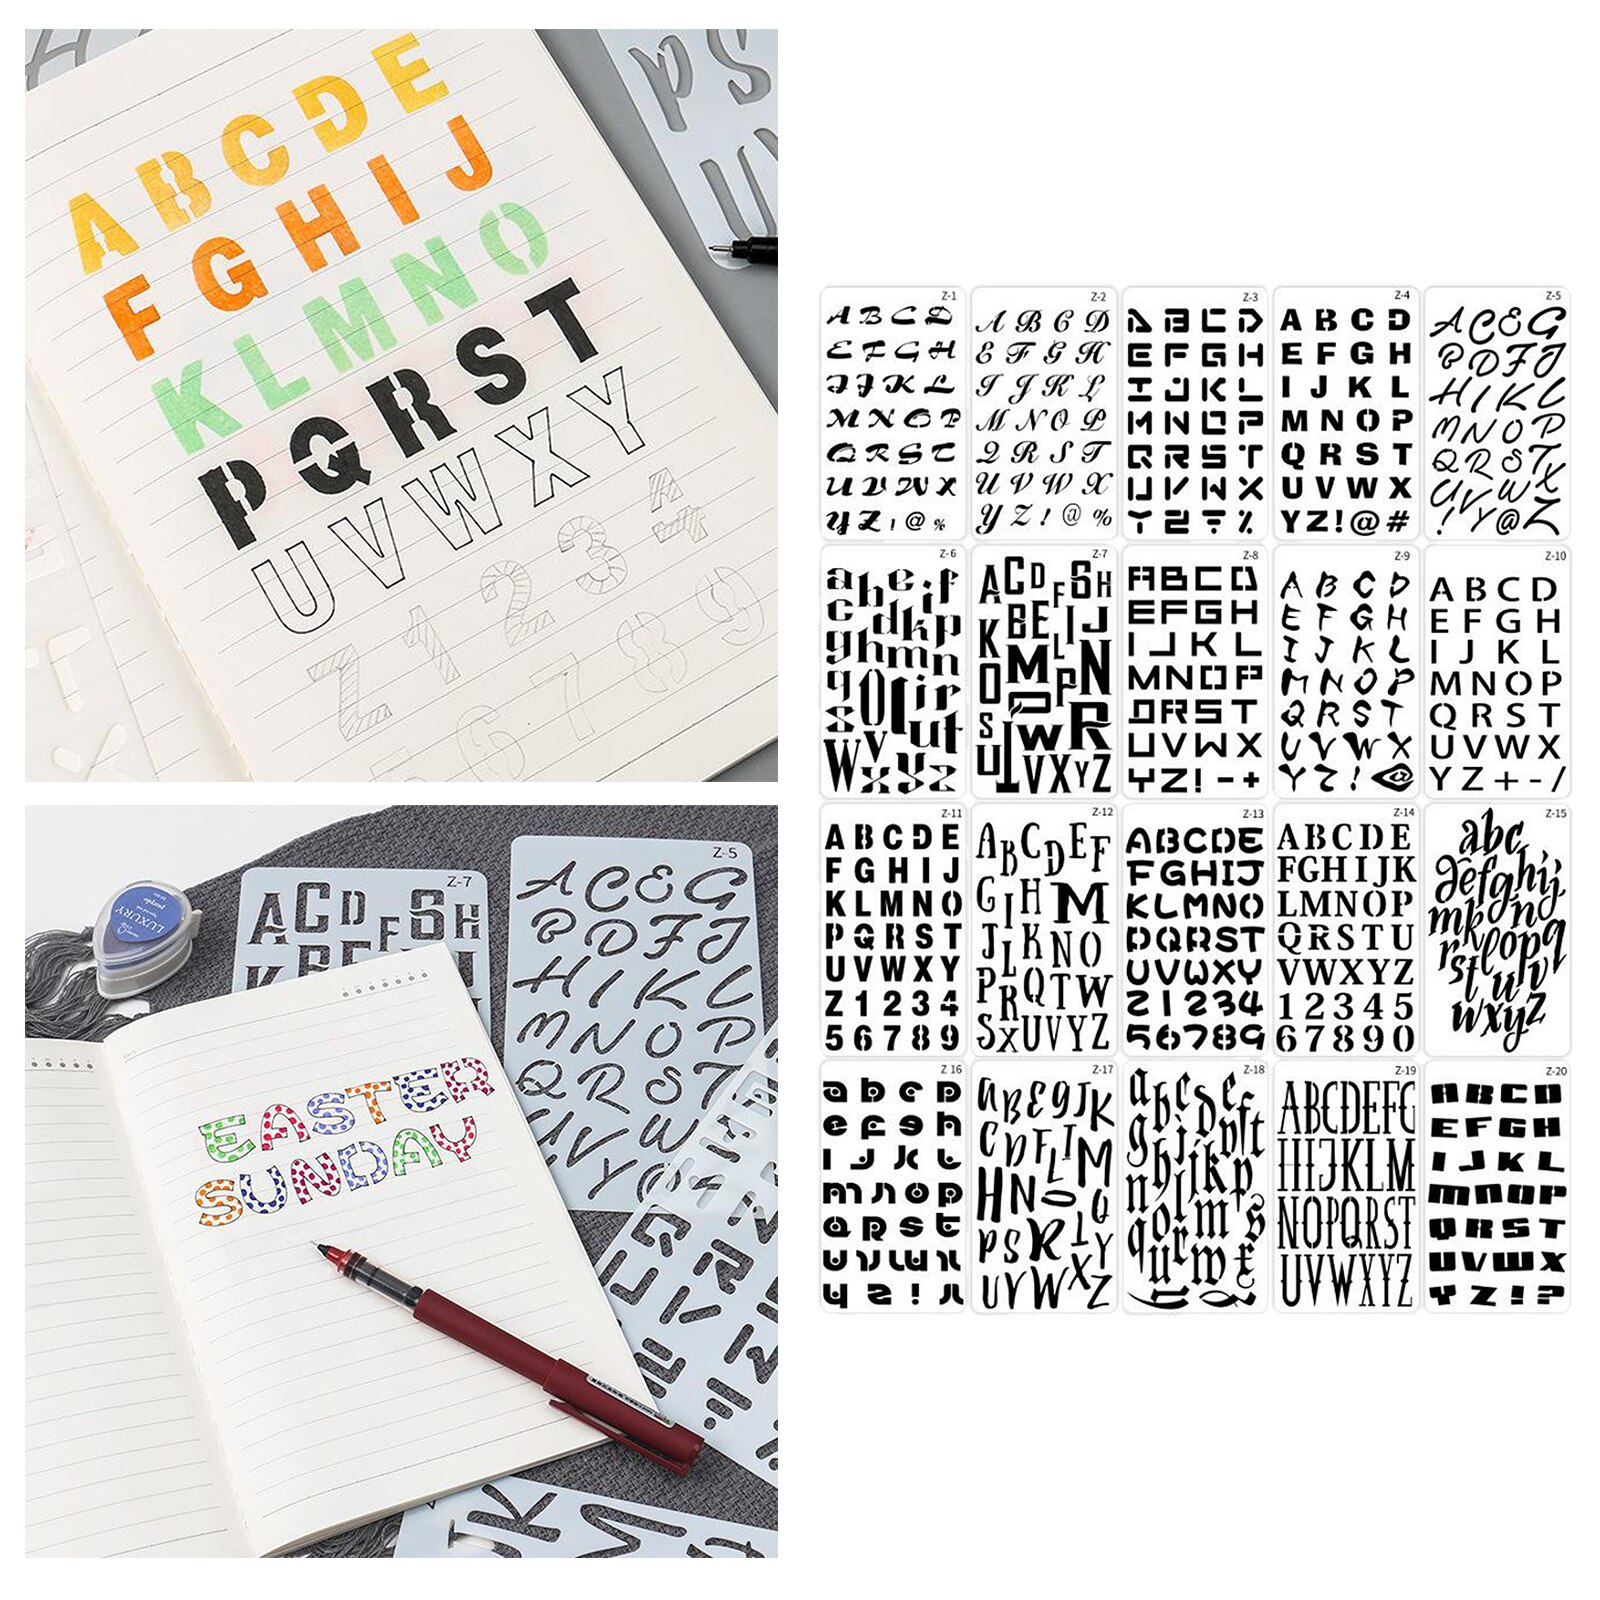 A B C D E
F G H I J
K L M N O
P Q R S T
U V W X Y
Z 1 2 3 4
5 6 7 8 9
P S
U
Z-7
A C D F S H
K B E
Z-5
A C E G
B D F J
H I K L
M N O P
Q R S T
U V W X
Y @
LUXURY
purple
EASTER
SUNDAY
Z-1
A B C D
E F G H
I J K L
M N O P
Q R S T
U V W X
Y Z ! @ %
Z-2
A B C D
E F G H
I J K L
M N O P
Q R S T
U V W X
Y Z ! @ %
Z-3
A B C D
E F G H
I J K L
M N O P
Q R S T
U V W X
Y Z ? %
Z-4
A B C D
E F G H
I J K L
M N O P
Q R S T
U V W X
Y Z ! @ #
Z-5
A C E G
B D F J
H I K L
M N O P
Q R S T
U V W X
! Y @ Z
Z-6
Z-7
A C D F S H
K B E L I J
O M P N
S P W R
U I V X Y Z
Z-8
A B C D
E F G H
I J K L
M N O P
Q R S T
U V W X
Y Z ! - +
Z-9
A B C D
E F G H
I J K L
M N O P
Q R S T
U V W X
Y Z ! @
Z-10
A B C D
E F G H
I J K L
M N O P
Q R S T
U V W X
Y Z + - /
Z-11
A B C D E
F G H I J
K L M N O
P Q R S T
U V W X Y
Z 1 2 3 4
5 6 7 8 9
Z-12
A B C D E F
G I H M
J L K N O
P R Q T W
S X U V Y Z
Z-13
A B C D E
F G H I J
K L M N O
P Q R S T
U V W X Y
Z 1 2 3 4
5 6 7 8 9
Z-14
A B C D E
F G H I J K
L M N O P
Q R S T U
V W X Y Z
1 2 3 4 5
6 7 8 9 0
Z-15
a b c
d e f g h i j
m k n q
r s t l o p
u v
w x y z
Z 16
a b c d
e f g h
i j k l
m n o p
q r s t
u v w x
y z !
Z-17
A B E G J K
C D F I L M
H N O Q
P S R T Y
U V W X Z
Z-18
Z-19
A B C D E F G
H I J K L M
N O P Q R S T
U V W X Y Z
Z-20
A B C D
E F G H
I J K L
M N O P
Q R S T
U V W X
Y Z ! ?